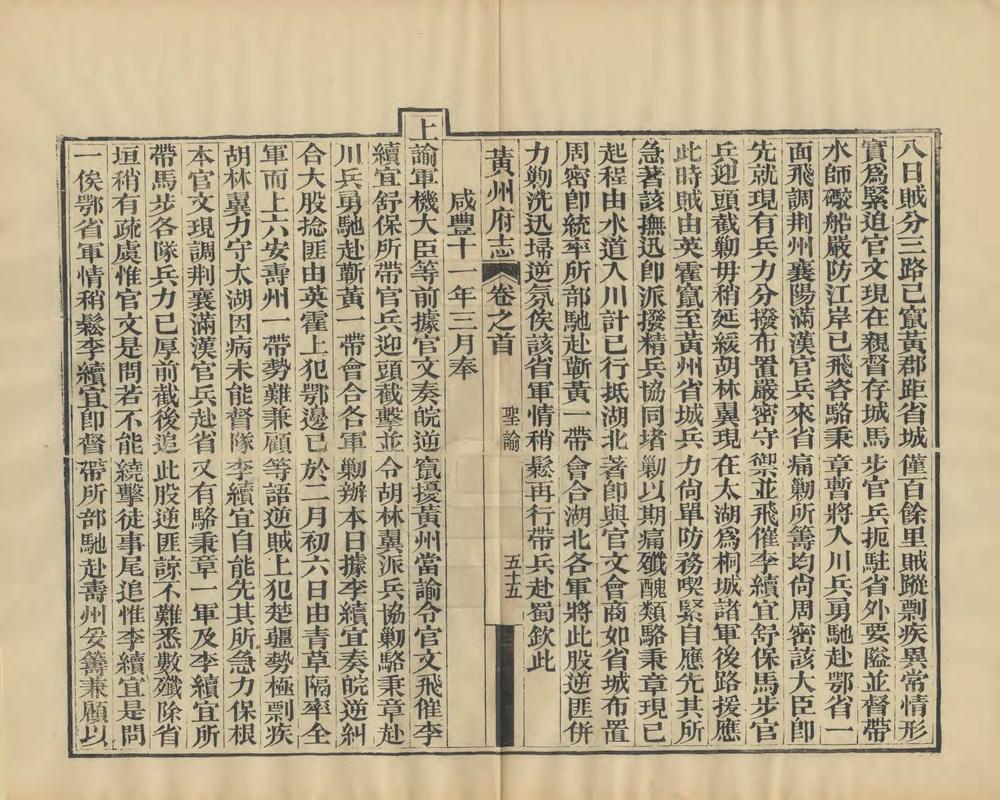 八日賊分三路已竄黃郡距省城僅百餘里賊蹤剽疾異常情形
實爲緊迫官文現在親督存城馬步官兵扼駐省外要隘並督帶
水師礮船嚴防江岸已飛咨駱秉章暫將入川兵勇馳赴鄂省一
面飛調荆州襄陽滿漢官兵來省痛勦所籌均尙周密該大臣卽
先就現有兵力分撥布置嚴密守禦並飛催李續宜舒保馬步官
兵迎頭截勦毋稍延緩胡林翼現在太湖爲桐城諸軍後路援應
此時賊由英霍竄至黃州省城兵力尙單防務喫緊自應先其所
急著該撫迅卽派撥精兵協同堵勦以期痛殲醜類駱秉章現已
起程由水道入川計已行抵湖北著卽與官文會商如省城布置
周密卽統率所部馳赴蘄黃一帶會合湖北各軍將此股逆匪併
力勦洗迅埽逆氛俟該省軍情稍鬆再行帶兵赴蜀欽此
黃州府志 卷之首 聖諭 五十五
咸豐十一年三月奉
上諭軍機大臣等前據官文奏皖逆竄擾黃州當諭令官文飛催李
續宜舒保所帶官兵迎頭截擊並令胡林翼派兵協勦駱秉章赴
川兵勇馳赴蘄黃一帶會合各軍勦辦本日據李續宜奏皖逆糾
合大股捻匪由英霍上犯鄂邊已於二月初六日由青草隔率全
軍而上六安壽州一帶勢難兼顧等語逆賊上犯楚疆勢極剽疾
胡林翼力守太湖因病未能督隊李續宜自能先其所急力保根
本官文現調荆襄滿漢官兵赴省又有駱秉章一軍及李續宜所
帶馬步各隊兵力已厚前截後追此股逆匪諒不難悉數殲除省
垣稍有疏虞惟官文是問若不能繞擊徒事尾追惟李續宜是問
一俟鄂省軍情稍鬆李續宜卽督帶所部馳赴壽州妥籌兼顧以